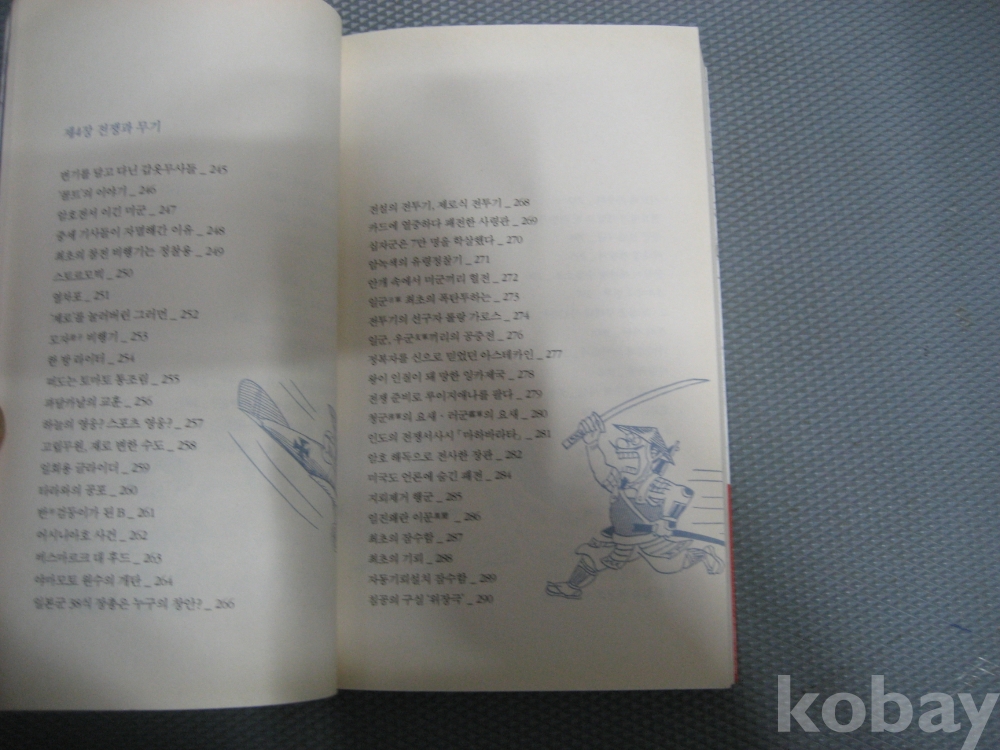 제4장 전쟁과 무기
변기를 달고 다닌 갑옷무사들 _ 245
'람프'의 이야기 _ 246
암호전서 이긴 미군 _ 247
중세 기사들이 자멸해간 이유 _ 248
최초의 참전 비행기는 정찰용 _ 249
스토르모빅 _ 250
열차포 _ 251
'제로'를 눌러버린 그러먼 _ 252
모자母子 비행기 _ 253
한 방 라이터 _ 254
떠도는 토마토 통조림 _ 255
과달카날의 교훈 _ 256
하늘의 영웅? 스포츠 영웅? _ 257
고립무원, 제로 변한 수도 _ 258
일회용 글라이더 _ 259
타라와의 공포 _ 260
반半검둥이가 된 B _ 261
어시니아호 사건 _ 262
비스마르크 대 후드 _ 263
야마모토 원수의 개탄 _ 264
일본군 38식 장총은 누구의 창안? _ 266
전설의 전투기, 제로식 전투기 _ 268
카드에 열중하다 패전한 사령관 _ 269
십자군은 7만 명을 학살했다 _ 270
암녹색의 유령정찰기 _ 271
안개 속에서 미군끼리 혈전 _ 272
일군日軍 최초의 폭탄투하는 _ 273
전투기의 선구자 롤랑 가로스 _ 274
일군, 우군友軍끼리의 공중전 _ 276
정복자를 신으로 믿었던 아스테카인 _ 277
왕이 인질이 돼 망한 잉카제국 _ 278
전쟁 준비로 루이지애나를 팔다 _ 279
청군淸軍의 요새·러군露軍의 요새 _ 280
인도의 전쟁서사시 「마하바라타」 _ 281
암호 해독으로 전사한 장관 _ 282
미국도 언론에 숨긴 패전 _ 284
지뢰제거 행군 _ 285
임진왜란 이문異聞 _ 286
최초의 잠수함 _ 287
최초의 기뢰 _ 288
자동기뢰설치 잠수함 _ 289
침공의 구실 '위장극' _ 290
kobay